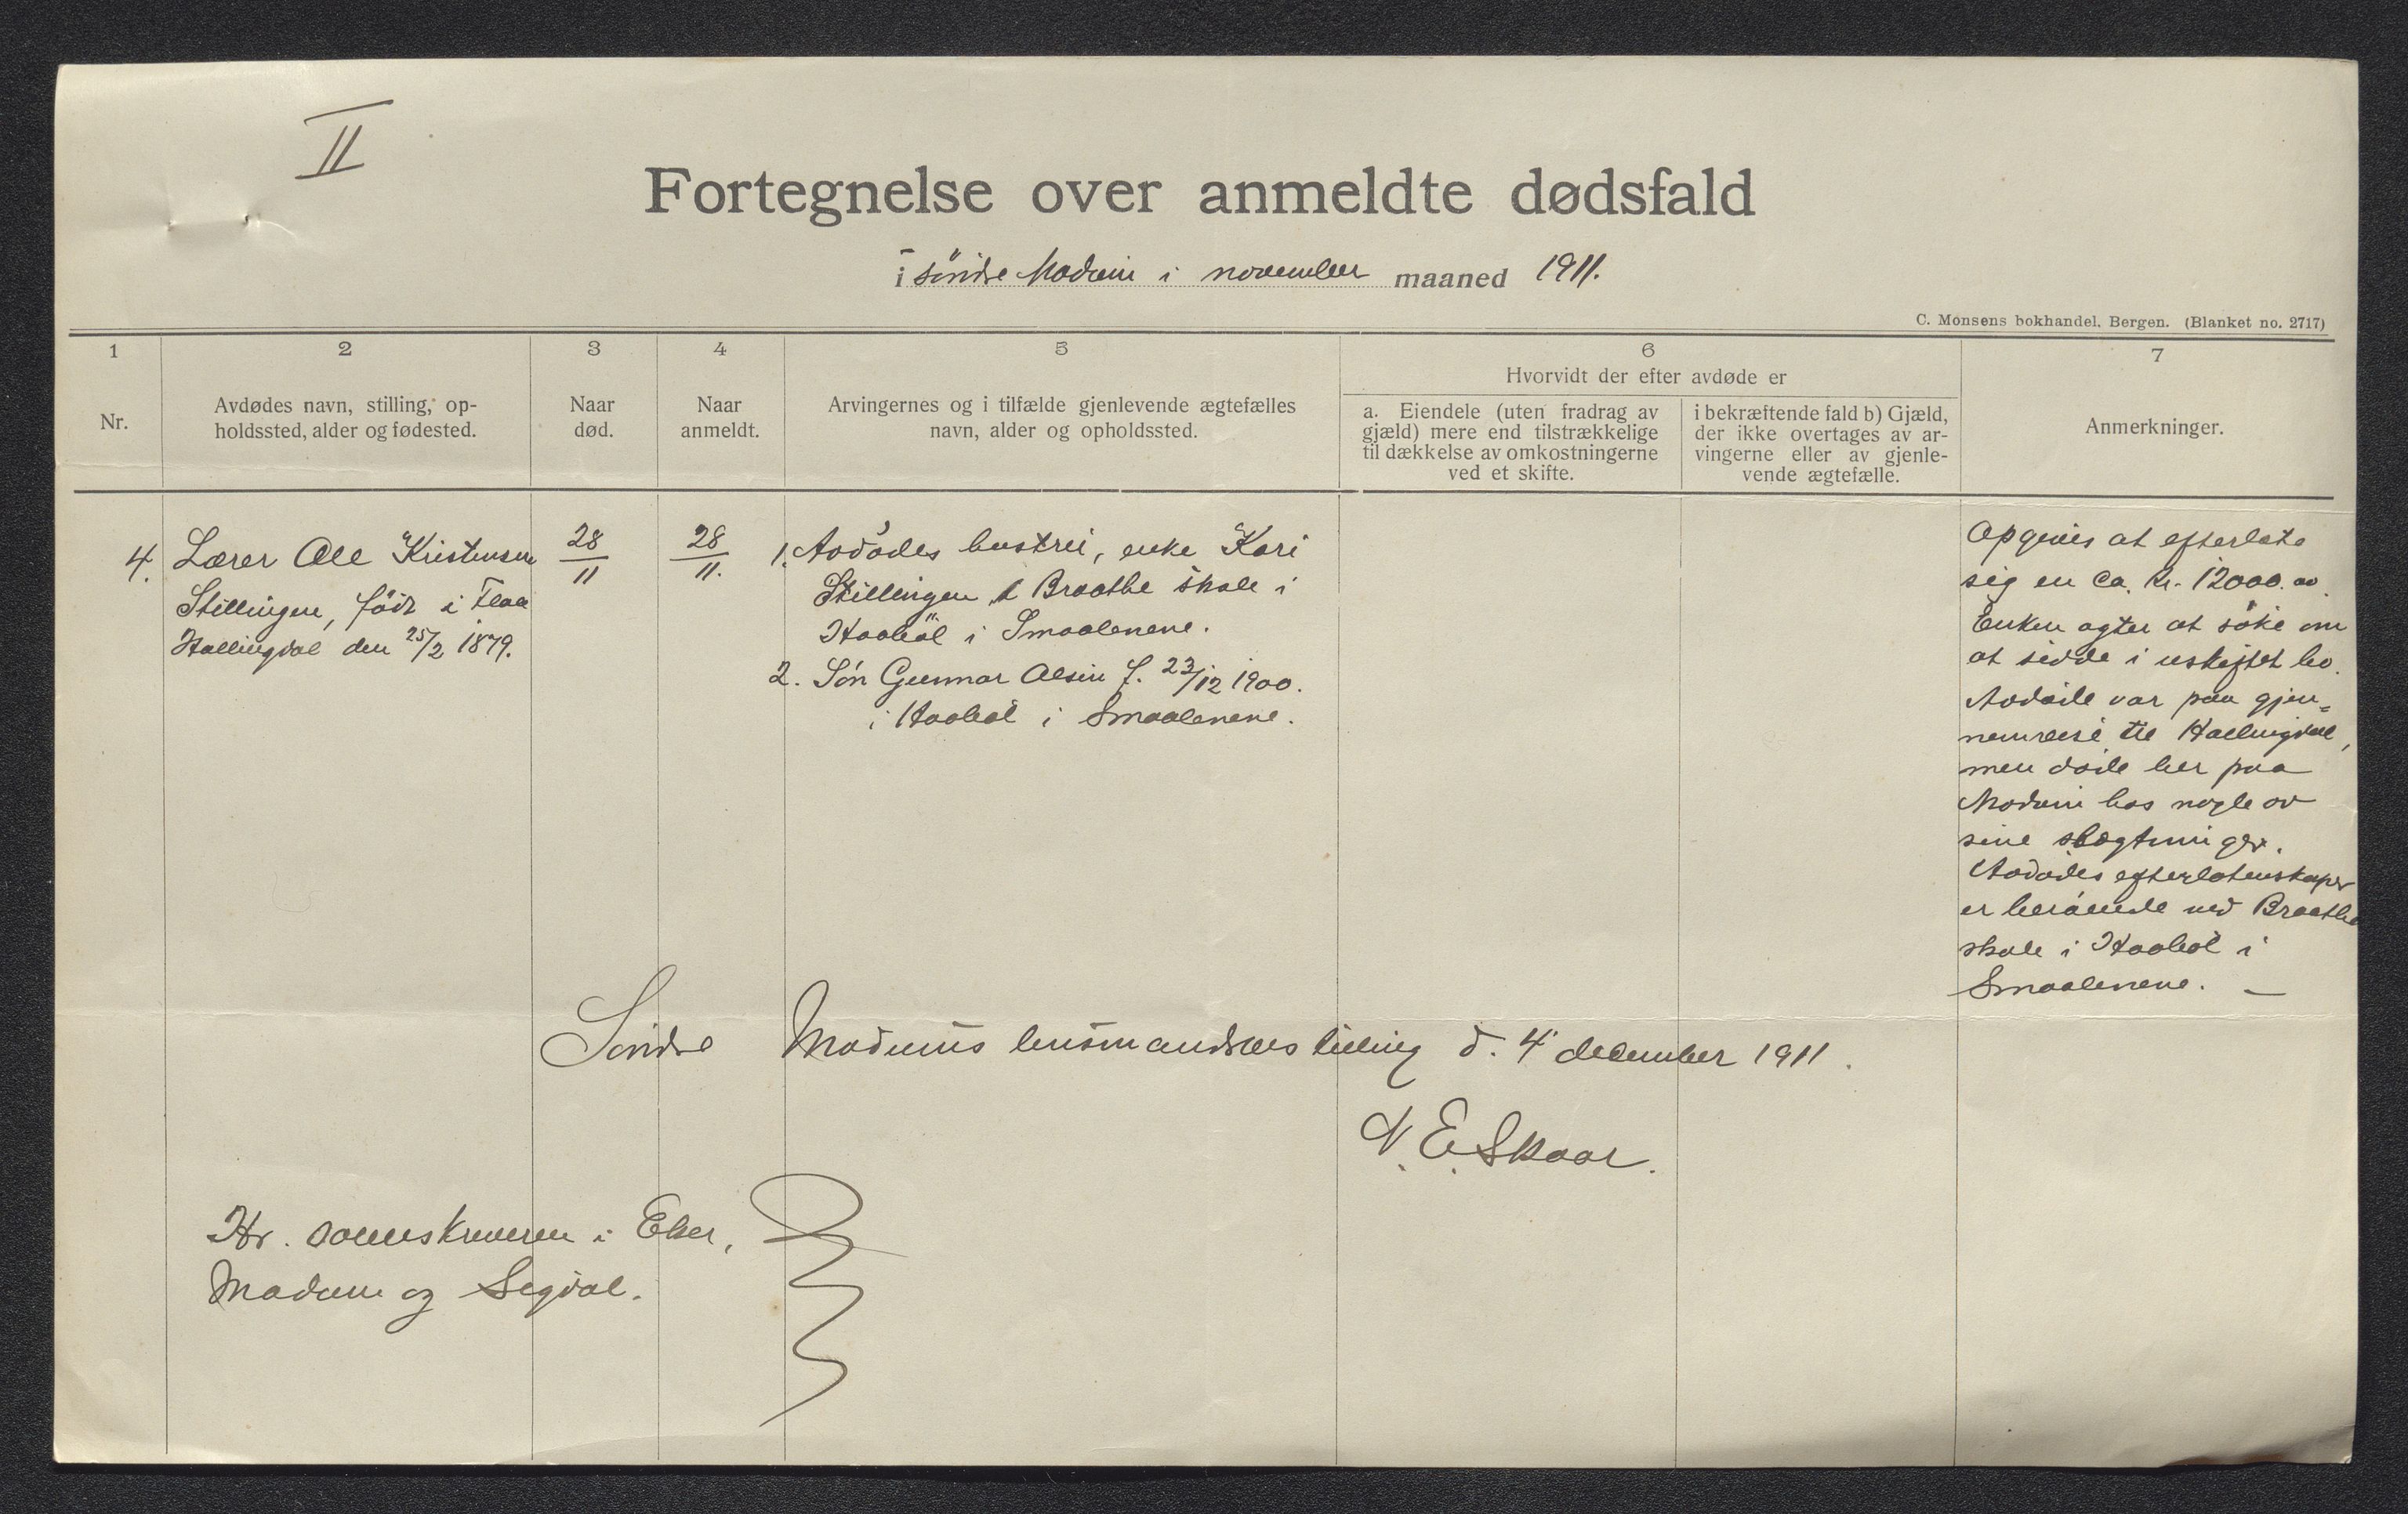 II
Fortegnelse over anmeldte dødsfald
i søndre Modum i november maaned 1911.
C. Monsens bokhandel, Bergen. (Blanket no. 2717)
1
2
3
4
5
6
7
Nr.
Avdødes navn, stilling, op-
holdssted, alder og fødested.
Naar
død.
Naar
anmeldt.
Arvingernes og i tilfælde gjenlevende ægtefælles
navn, alder og opholdssted.
Hvorvidt der efter avdøde er
a. Eiendele (uten fradrag av
gjæld) mere end tilstrækkelige
til dækkelse av omkostningerne
ved et skifte.
i bekræftende fald b) Gjæld,
der ikke overtages av ar-
vingerne eller av gjenle-
vende ægtefælle.
Anmerkninger.
4.
Lærer Ole Kristensen
Stillingen, född i Flaa
Hallingdal den 25/2 1879.
28
11
28
11.
1. Avdødes hustru, enke Kari
Stillingen, Braathe skole i
Haabøl i Smaalenene.
2. Søn Gunnar Olsen f. 23/12 1900.
i Haabøl i Smaalenene.
Opgives at efterlate
sig en ca. kr. 12000.00.
Enken agter at søke om
at sidde i uskiftet bo.
Avdøde var paa gjen=
nemreise til Hallingdal,
men døde her paa
Modum hos nogle av
sine slægtninger.
Avdødes efterlatenskaper
er beroende ved Braathe
skole i Haabøl i
Smaalenene. —
Søndre Modums lensmandsbestilling d. 4 december 1911.
N. E. Skaar.
Hr. sorenskriveren i Eker,
Modum og Sigdal.